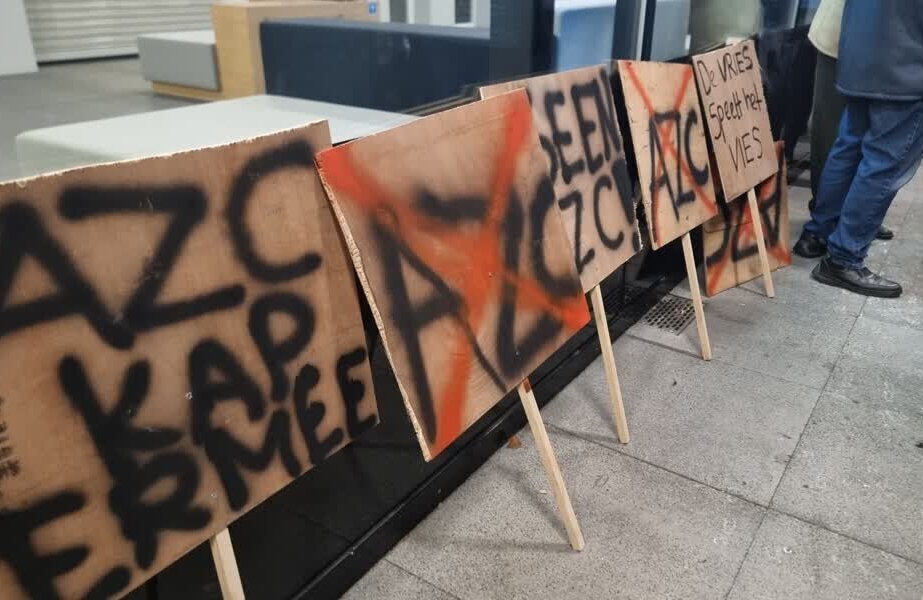 AZC
KAP
ERMEE
AZC
GEEN
AZC
AZC
De VRIES
Speelt het
VIES